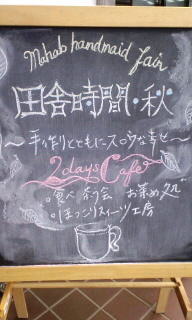 Mahab handmaid fair
田舎時間・秋
～手作りとともにスロウな幸せ～
2days Cafe
食べ 茶会 お薬め処
ほっこりスイーツ工房